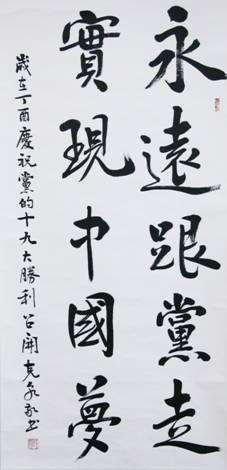 永遠跟黨走
實現中國夢
歲在丁酉慶祝黨的十九大勝利召開